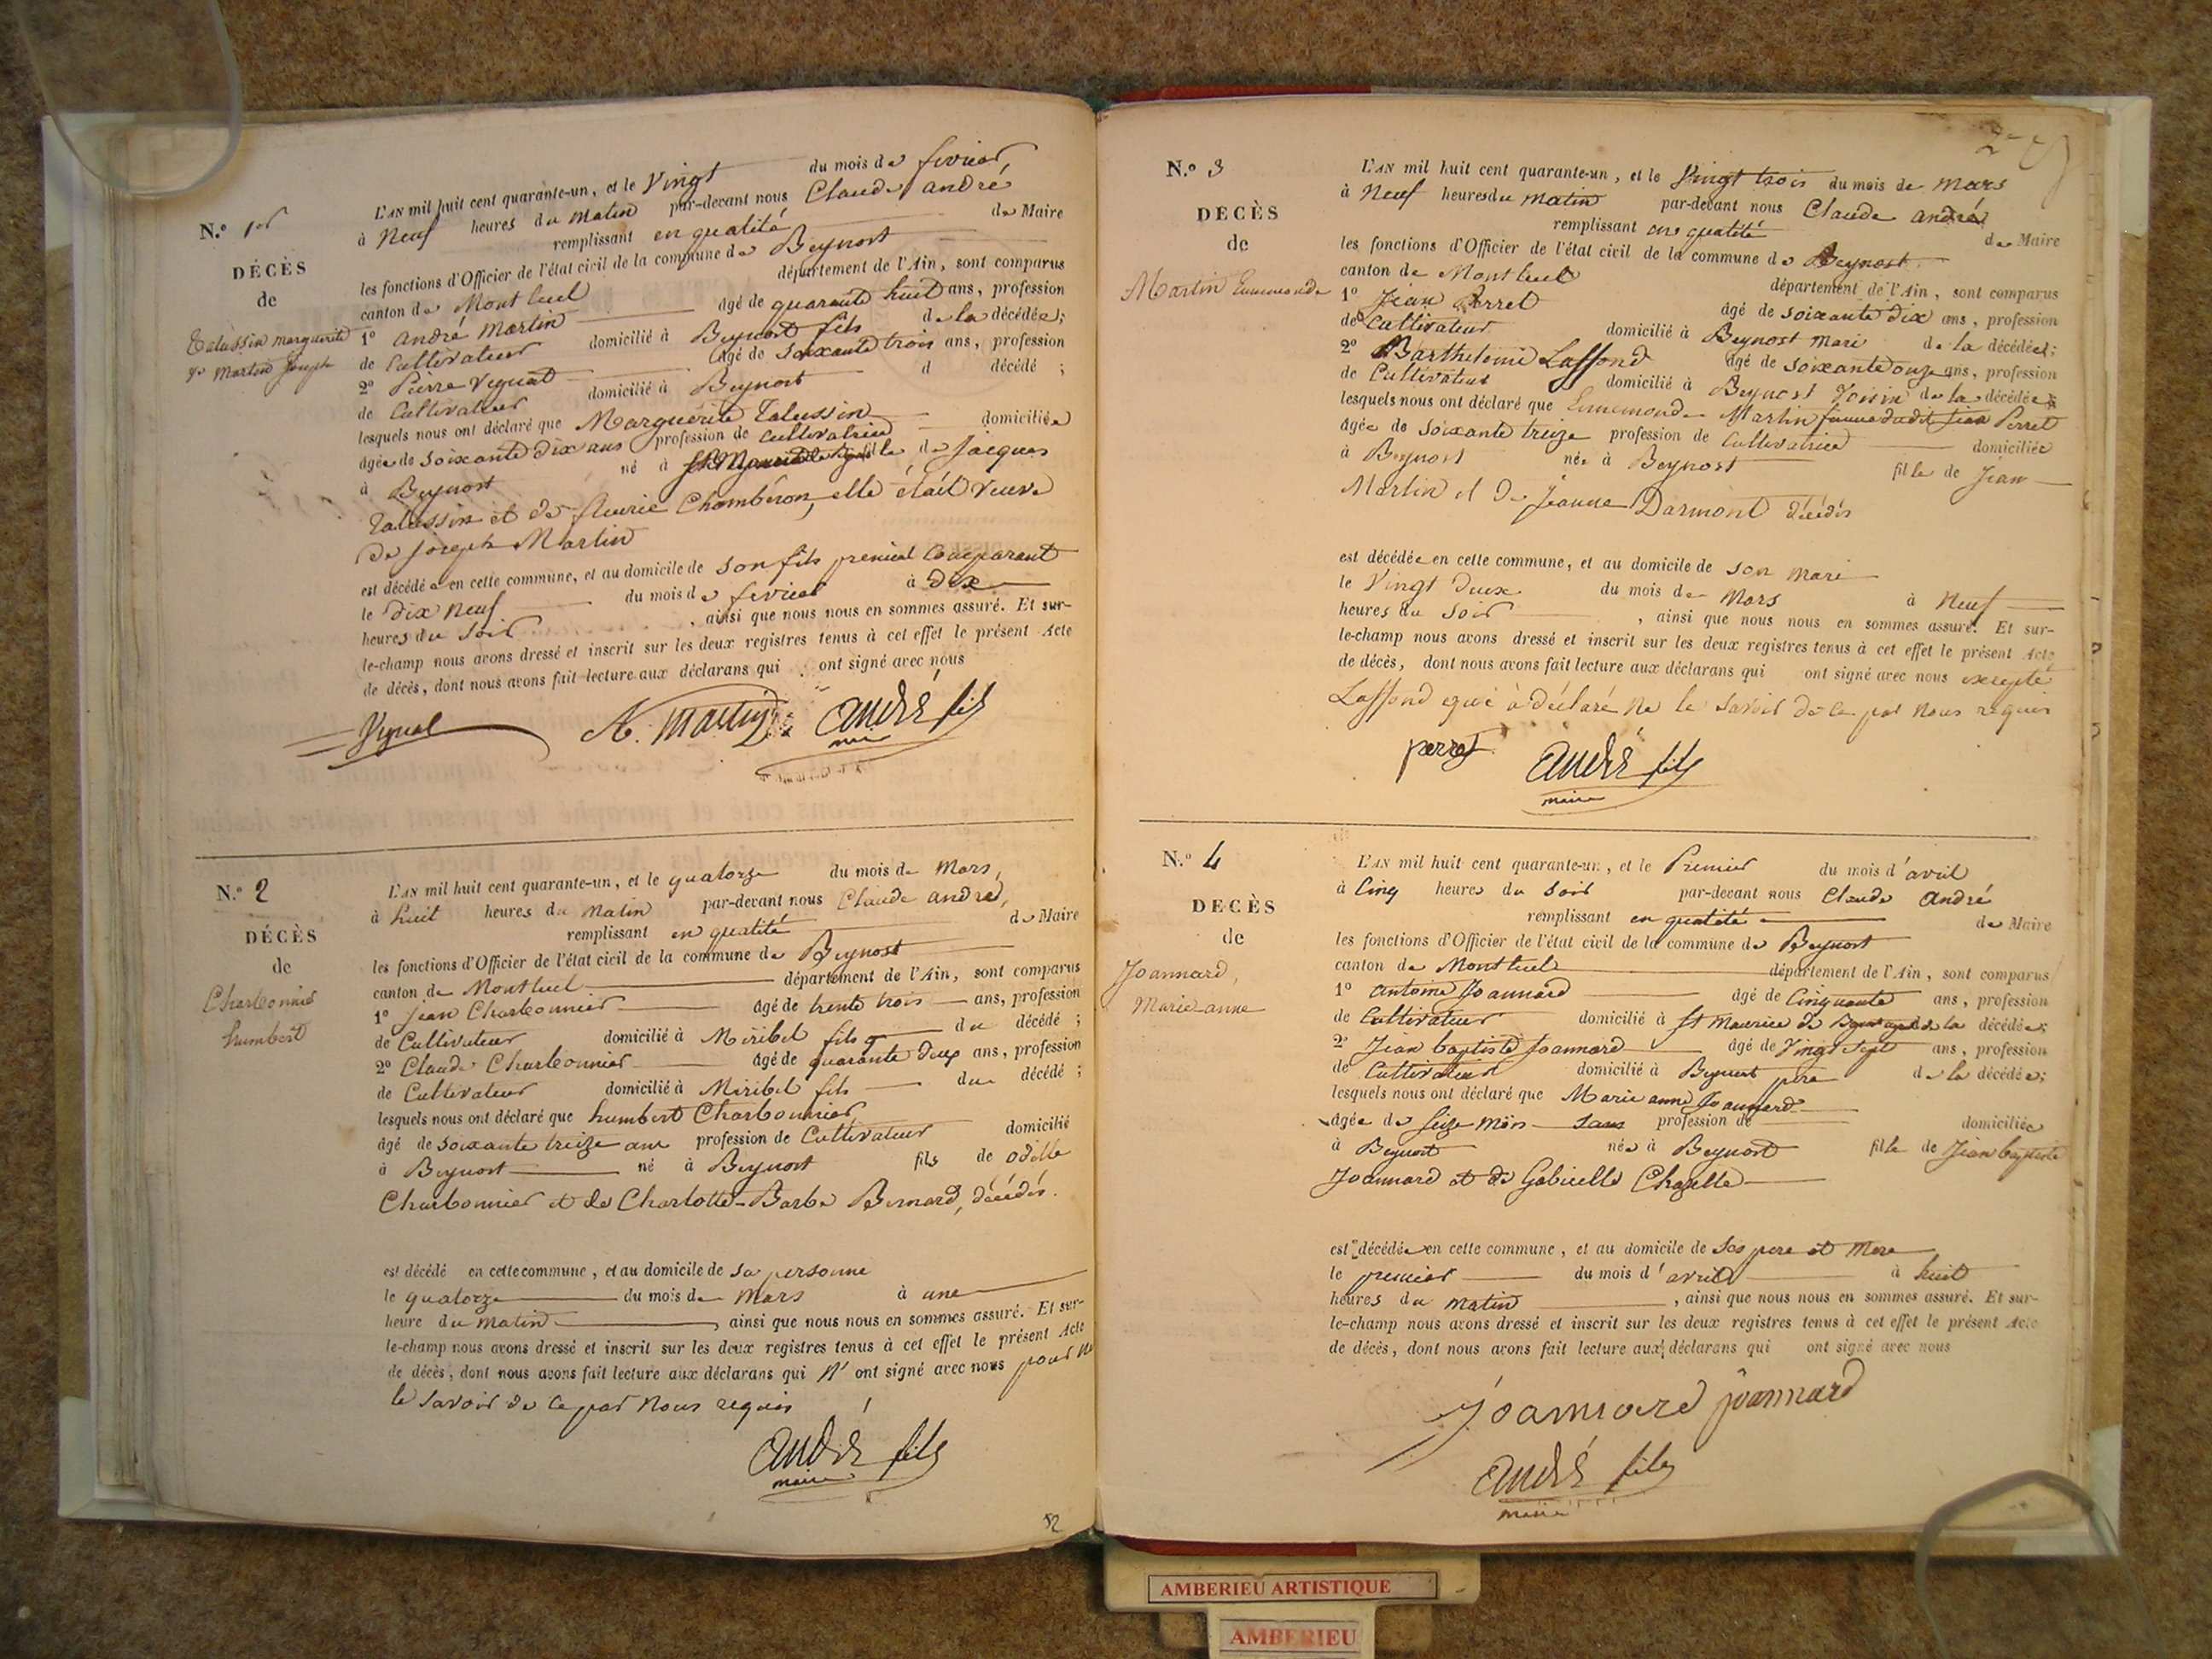 N.º 1er
DÉCÈS
de
Talussin marguerite
ve Martin Joseph
L'AN mil huit cent quarante-un, et le Vingt du mois de fevrier,
à Neuf heures du Matin par-devant nous Claude andré
remplissant en qualité de Maire
les fonctions d'Officier de l'état civil de la commune de Beynost
canton de Montluel département de l'Ain, sont comparus
1º andré Martin âgé de quarante huit ans, profession
de Cultivateur domicilié à Beynost fils de la décédée;
2º Pierre Vignat âgé de soixante trois ans, profession
de Cultivateur domicilié à Beynost d décédé ;
lesquels nous ont déclaré que Marguerite Talussin
âgée de soixante dix ans profession de cultivatrice domiciliée
à Beynost né à fille de Jacques
Talussin et de fleurie Chambéron, elle était veuve
de joseph Martin
est décédée en cette commune, et au domicile de son fils premier comparant
le dix neuf du mois de fevrier à dix
heures du soir , ainsi que nous nous en sommes assuré. Et sur-
le-champ nous avons dressé et inscrit sur les deux registres tenus à cet effet le présent Acte
de décès, dont nous avons fait lecture aux déclarans qui ont signé avec nous
Vignal A. Martin andré fils
maire
N.º 2
DÉCÈS
de
Charbonnier
humbert
L'AN mil huit cent quarante-un, et le quatorze du mois de Mars,
à huit heures du Matin par-devant nous Claude andré,
remplissant en qualité de Maire
les fonctions d'Officier de l'état civil de la commune de Beynost
canton de Montluel département de l'Ain, sont comparus
1º Jean Charbonnier âgé de trente trois ans, profession
de Cultivateur domicilié à Miribel fils du décédé ;
2º Claude Charbonnier âgé de quarante deux ans, profession
de Cultivateur domicilié à Miribel fils du décédé ;
lesquels nous ont déclaré que humbert Charbonnier
âgé de soixante treize ans profession de Cultivateur domicilié
à Beynost né à Beynost fils de odille
Charbonnier et de Charlotte-Barbe Bernard, décédés.
est décédé en cette commune, et au domicile de sa personne
le quatorze du mois de Mars à une
heure du matin , ainsi que nous nous en sommes assuré. Et sur-
le-champ nous avons dressé et inscrit sur les deux registres tenus à cet effet le présent Acte
de décès, dont nous avons fait lecture aux déclarans qui N' ont signé avec nous pour ne
le savoir de ce par nous requis
andré fils
maire
N.º 3
DÉCÈS
de
Martin Ennemonde
L'AN mil huit cent quarante-un, et le Vingt trois du mois de Mars
à Neuf heures du matin par-devant nous Claude andré
remplissant en qualité de Maire
les fonctions d'Officier de l'état civil de la commune de Beynost
canton de Montluel département de l'Ain, sont comparus
1º Jean Perret âgé de soixante dix ans, profession
de Cultivateur domicilié à Beynost mari de la décédée;
2º Barthelemi Laffond âgé de soixante onze ans, profession
de Cultivateur domicilié à Beynost Voisin de la décédée;
lesquels nous ont déclaré que Ennemonde Martin femme dudit Jean Perret
âgée de soixante treize profession de Cultivatrice domiciliée
à Beynost née à Beynost fille de Jean
Martin et de Jeanne Darmont décédés
est décédée en cette commune, et au domicile de son mari
le Vingt deux du mois de Mars à Neuf
heures du soir , ainsi que nous nous en sommes assuré. Et sur-
le-champ nous avons dressé et inscrit sur les deux registres tenus à cet effet le présent Acte
de décès, dont nous avons fait lecture aux déclarans qui ont signé avec nous excepté
Laffond qui à déclaré ne le savoir de ce par nous requis
perret andré fils
maire
N.º 4
DÉCÈS
de
Joannard,
Marie anne
L'AN mil huit cent quarante-un, et le Premier du mois d'avril
à Cinq heures du soir par-devant nous Claude André
remplissant en qualité de Maire
les fonctions d'Officier de l'état civil de la commune de Beynost
canton de Montluel département de l'Ain, sont comparus
1º antoine Joannard âgé de Cinquante ans, profession
de Cultivateur domicilié à St Maurice de de la décédée;
2º Jean baptiste Joannard âgé de Vingt sept ans, profession
de Cultivateur domicilié à Beynost père de la décédée;
lesquels nous ont déclaré que Marie anne Joannard
âgée de seize mois sans profession de domiciliée
à Beynost née à Beynost fille de Jean baptiste
Joannard et de Gabrielle Chazelle
est décédée en cette commune, et au domicile de ses pere et Mere
le premier du mois d'avril à huit
heures du matin , ainsi que nous nous en sommes assuré. Et sur-
le-champ nous avons dressé et inscrit sur les deux registres tenus à cet effet le présent Acte
de décès, dont nous avons fait lecture aux déclarans qui ont signé avec nous
Joannard joannard
andré fils
maire
AMBERIEU ARTISTIQUE
AMBERIEU